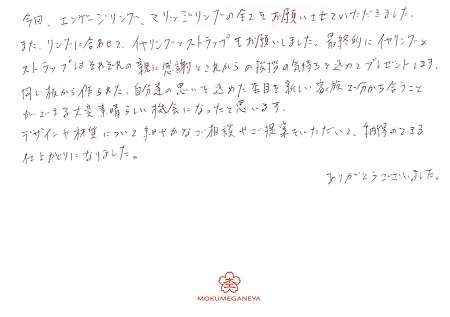 今回、エンゲージリング、マリッジリングの全てをお願いさせていただきました。
また、リングに合わせて、イヤリングとストラップもお願いしました。最終的にイヤリングと
ストラップはそれぞれの親に感謝とこれからの挨拶の気持ちを込めてプレゼントします。
同じ板から作られた、自分達の思いを込めた杢目を新しい家族で分かち合うこと
ができる大変素晴らしい機会になったと思います。
デザインや材質について細やかなご相談やご提案をいただいて、納得のできる
仕上がりになりました。
ありがとうございました。
MOKUMEGANEYA